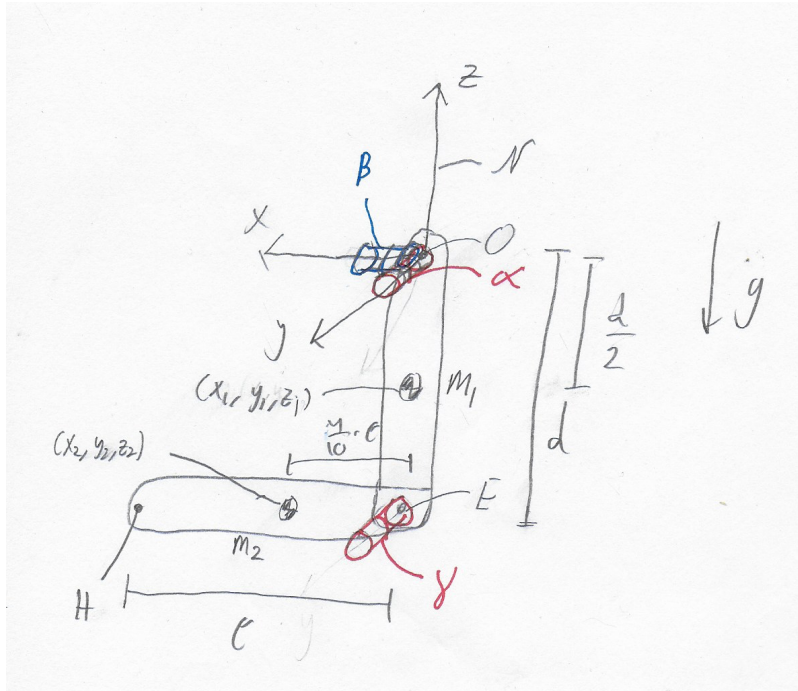 z
N
β
x
O
α
y
g
d/2
(x₁, y₁, z₁)
m₁
d
4/10 · ℓ
(x₂, y₂, z₂)
E
m₂
H
γ
ℓ